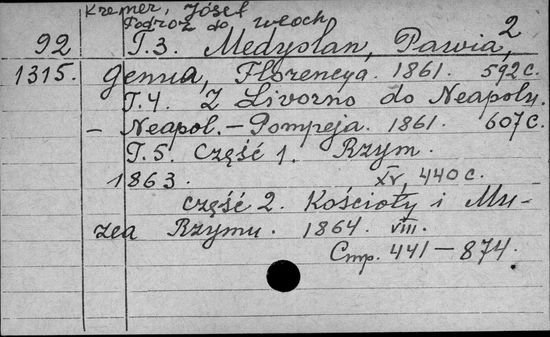 Kremer, Józef
Podróż do Włoch 2
92 T.3. Medyolan, Pawia,
1315. Genua, Florencya. 1861. 592 c.
T.4. Z Livorno do Neapolu.
– Neapol. – Pompeja. 1861. 607 c.
T.5. Część 1. Rzym.
1863. XV, 440 c.
Część 2. Kościoły i Mu-
zea Rzymu. 1864. VIII.
Cmp. 441 – 874.